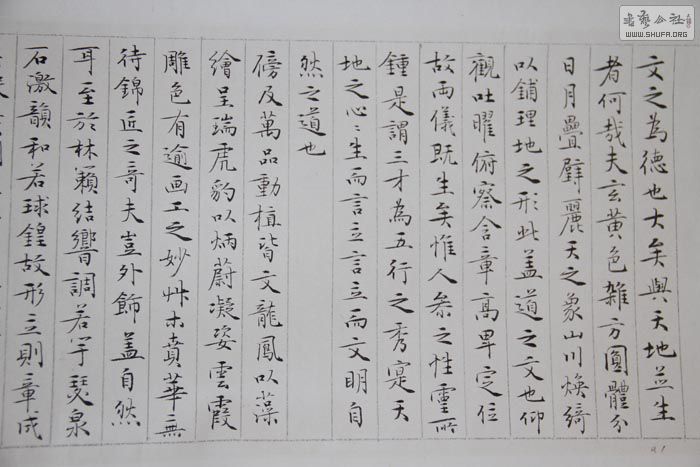 文之為德也大矣與天地並生
者何哉夫玄黄色雜方圓體分
日月疊壁麗天之象山川煥綺
以鋪理地之形此盖道之文也仰
觀吐曜俯察含章高卑定位
故兩儀既生矣惟人叅之性靈所
鍾是謂三才為五行之秀寔天
地之心:生而言立言立而文明自
然之道也
傍及萬品動植皆文龍鳳以藻
繪呈瑞虎豹以炳蔚凝姿雲霞
雕色有逾画工之妙艸木賁華無
待錦匠之奇夫豈外飾盖自然
耳至於林籟結響調若竽瑟泉
石激韻和若球鍠故形立則章成
書藝公社
WWW.SHUFA.ORG